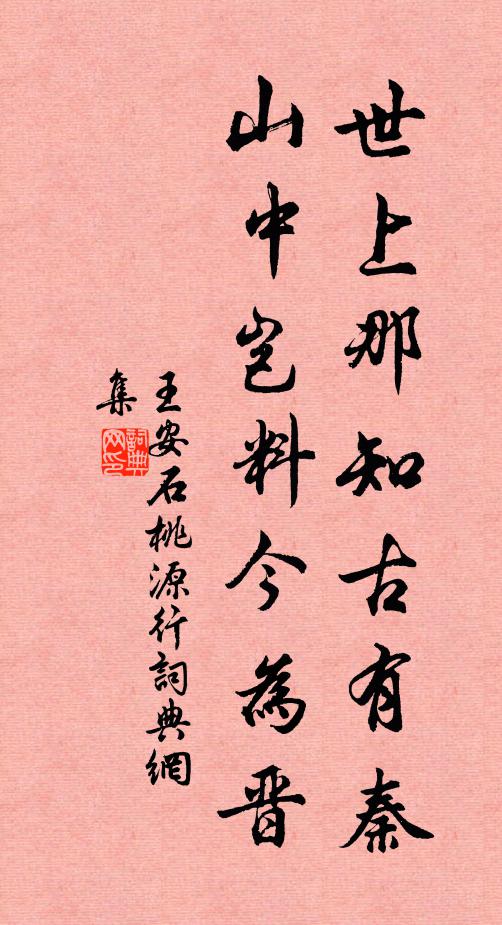 世上那知古有秦
山中岂料今為晋
王安石桃源行詞典網
集
詞典网印